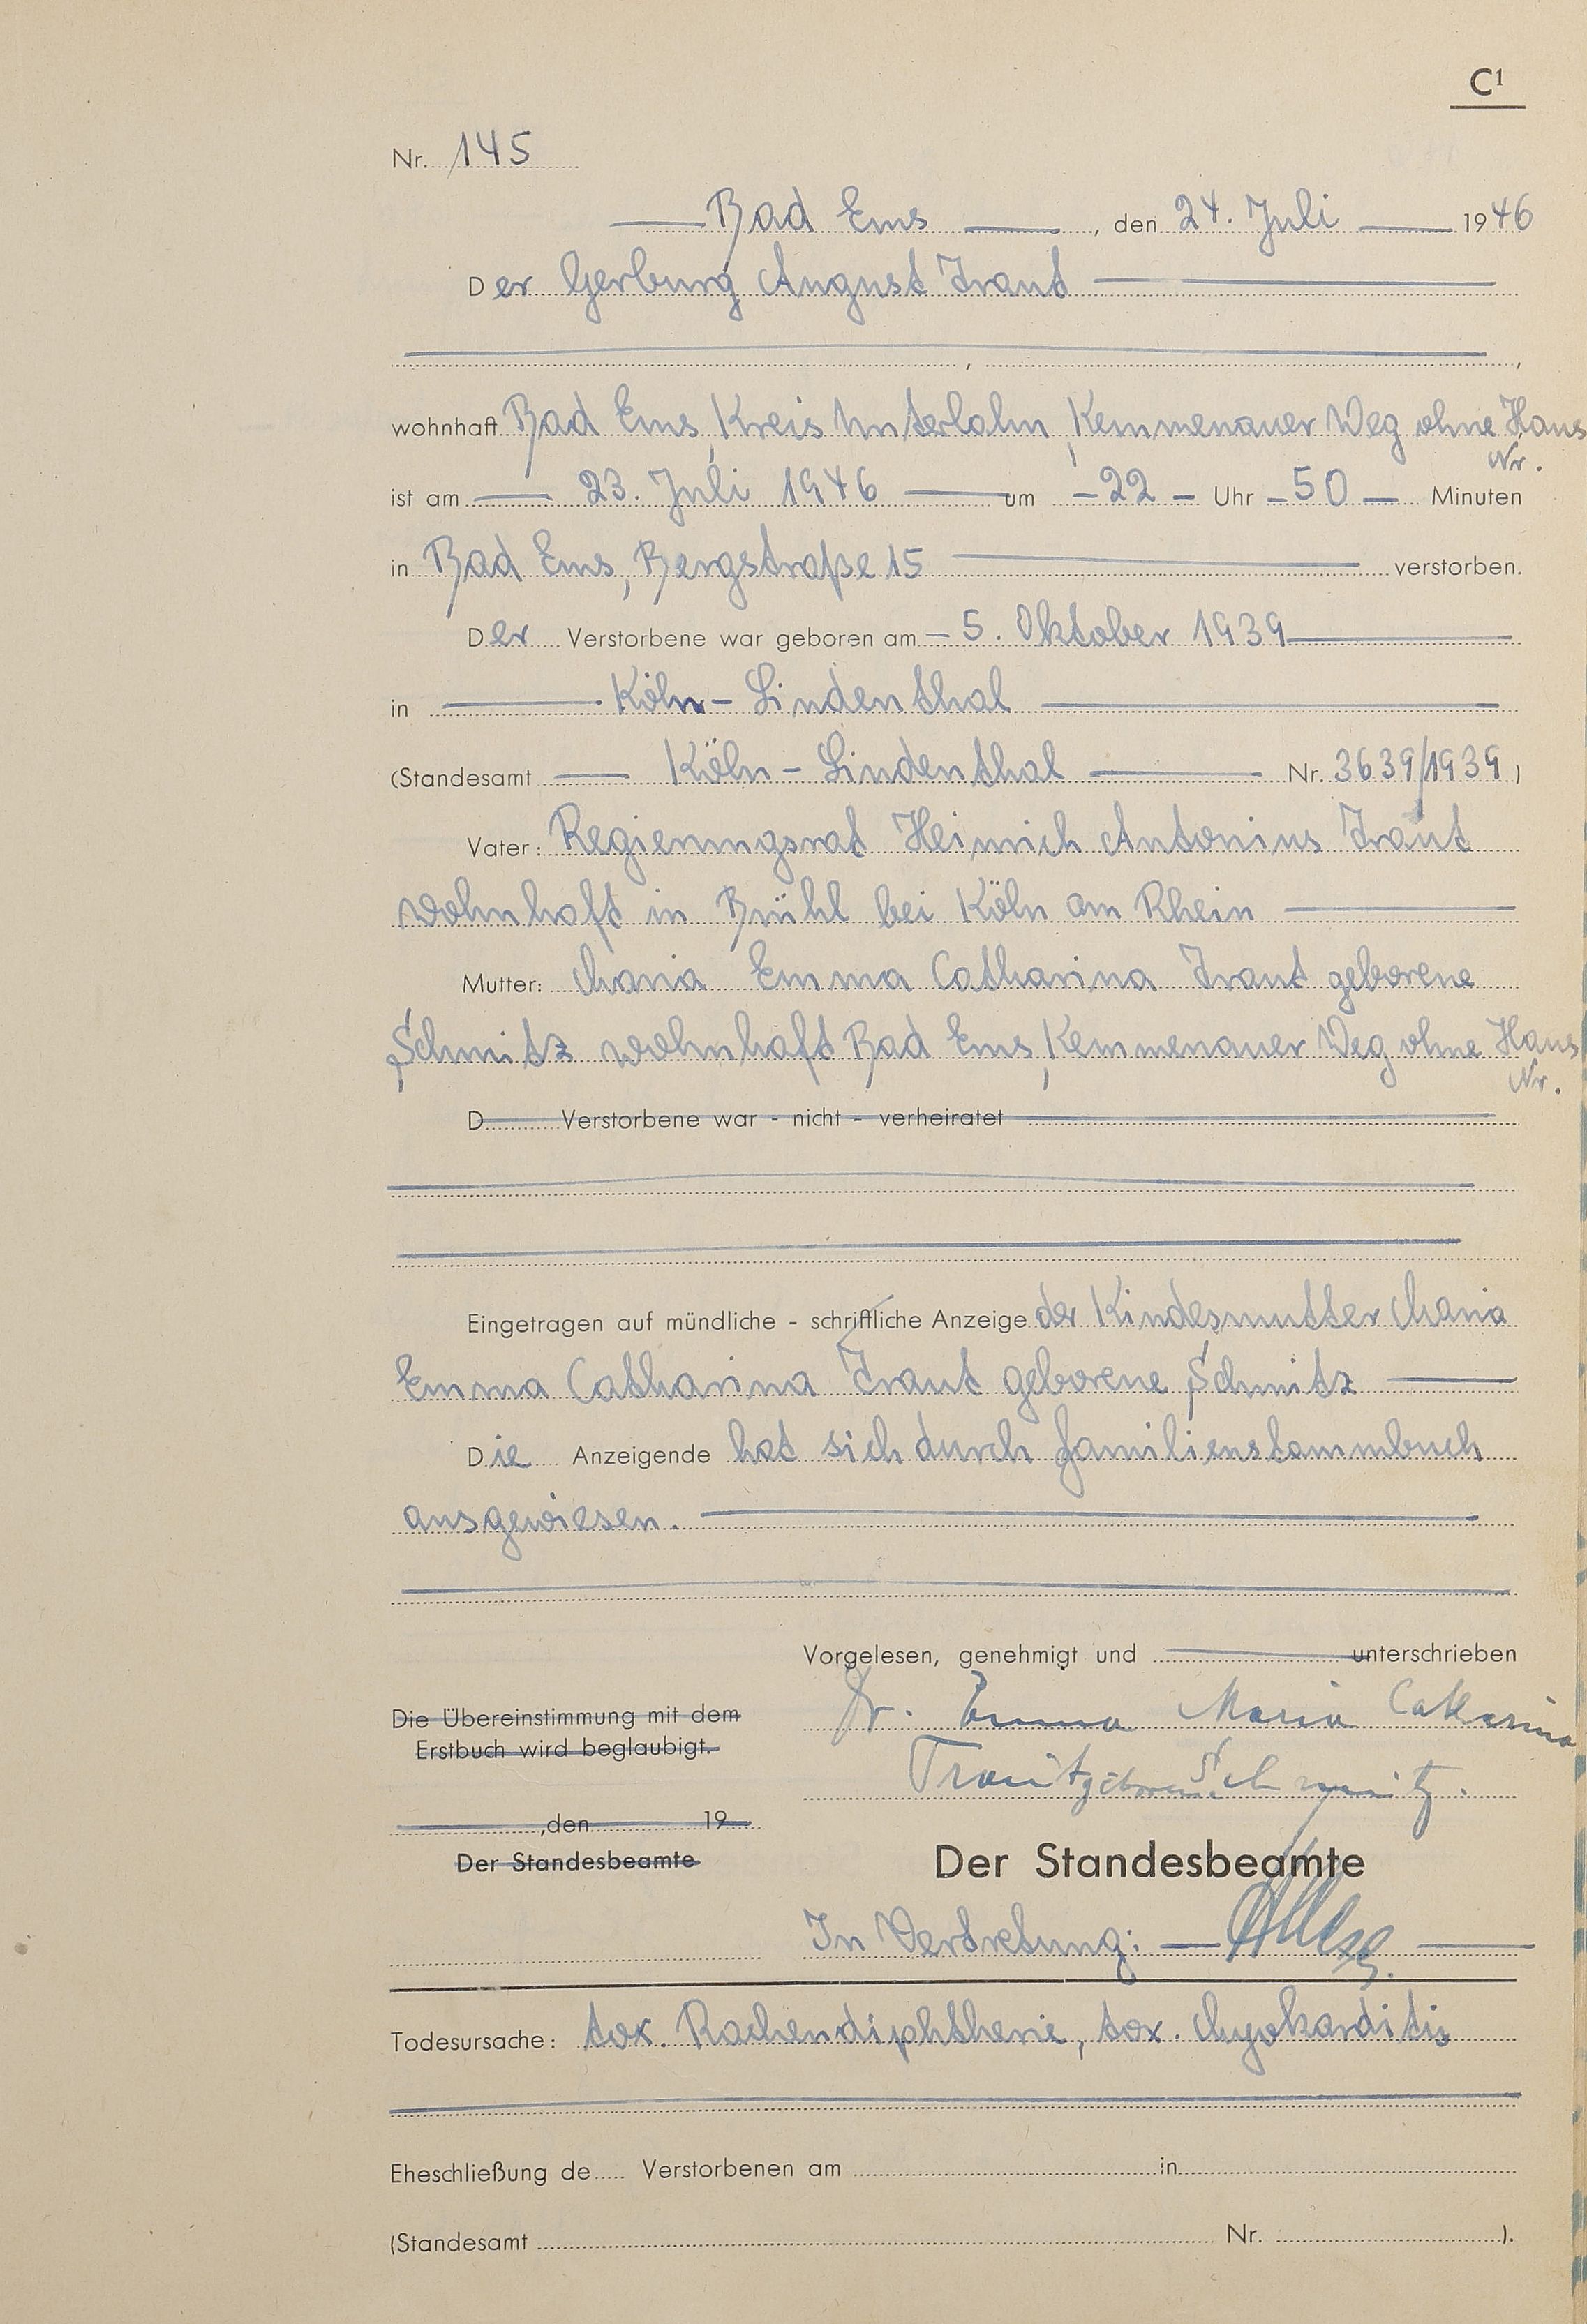 C¹
Nr. 145
Bad Ems, den 24. Juli 1946
Der Gerburg August Traut
,
,
wohnhaft Bad Ems, Kreis Unterlahn, Kemmenauer Weg ohne Haus
Nr.
ist am 23. Juli 1946 um -22- Uhr -50- Minuten
in Bad Ems, Bergstraße 15 verstorben.
Der Verstorbene war geboren am - 5. Oktober 1939
in Köln-Lindenthal
(Standesamt Köln-Lindenthal Nr. 3639/1939)
Vater: Regierungsrat Heinrich Antonius Traut
wohnhaft in Brühl bei Köln am Rhein
Mutter: Maria Emma Catharina Traut geborene
Schmitz wohnhaft Bad Ems, Kemmenauer Weg ohne Haus
Nr.
D Verstorbene war - nicht - verheiratet
Eingetragen auf mündliche - schriftliche Anzeige der Kindesmutter Maria
Emma Catharina Traut geborene Schmitz
Die Anzeigende hat sich durch Familienstammbuch
ausgewiesen.
Vorgelesen, genehmigt und unterschrieben
Die Übereinstimmung mit dem
Erstbuch wird beglaubigt.
, den 19
Der Standesbeamte
Dr. Emma Maria Catharina
Traut geborene Schmitz.
Der Standesbeamte
In Vertretung:
Todesursache: tox. Rachendiphtherie, tox. Myokarditis
Eheschließung de Verstorbenen am in
(Standesamt Nr. ).